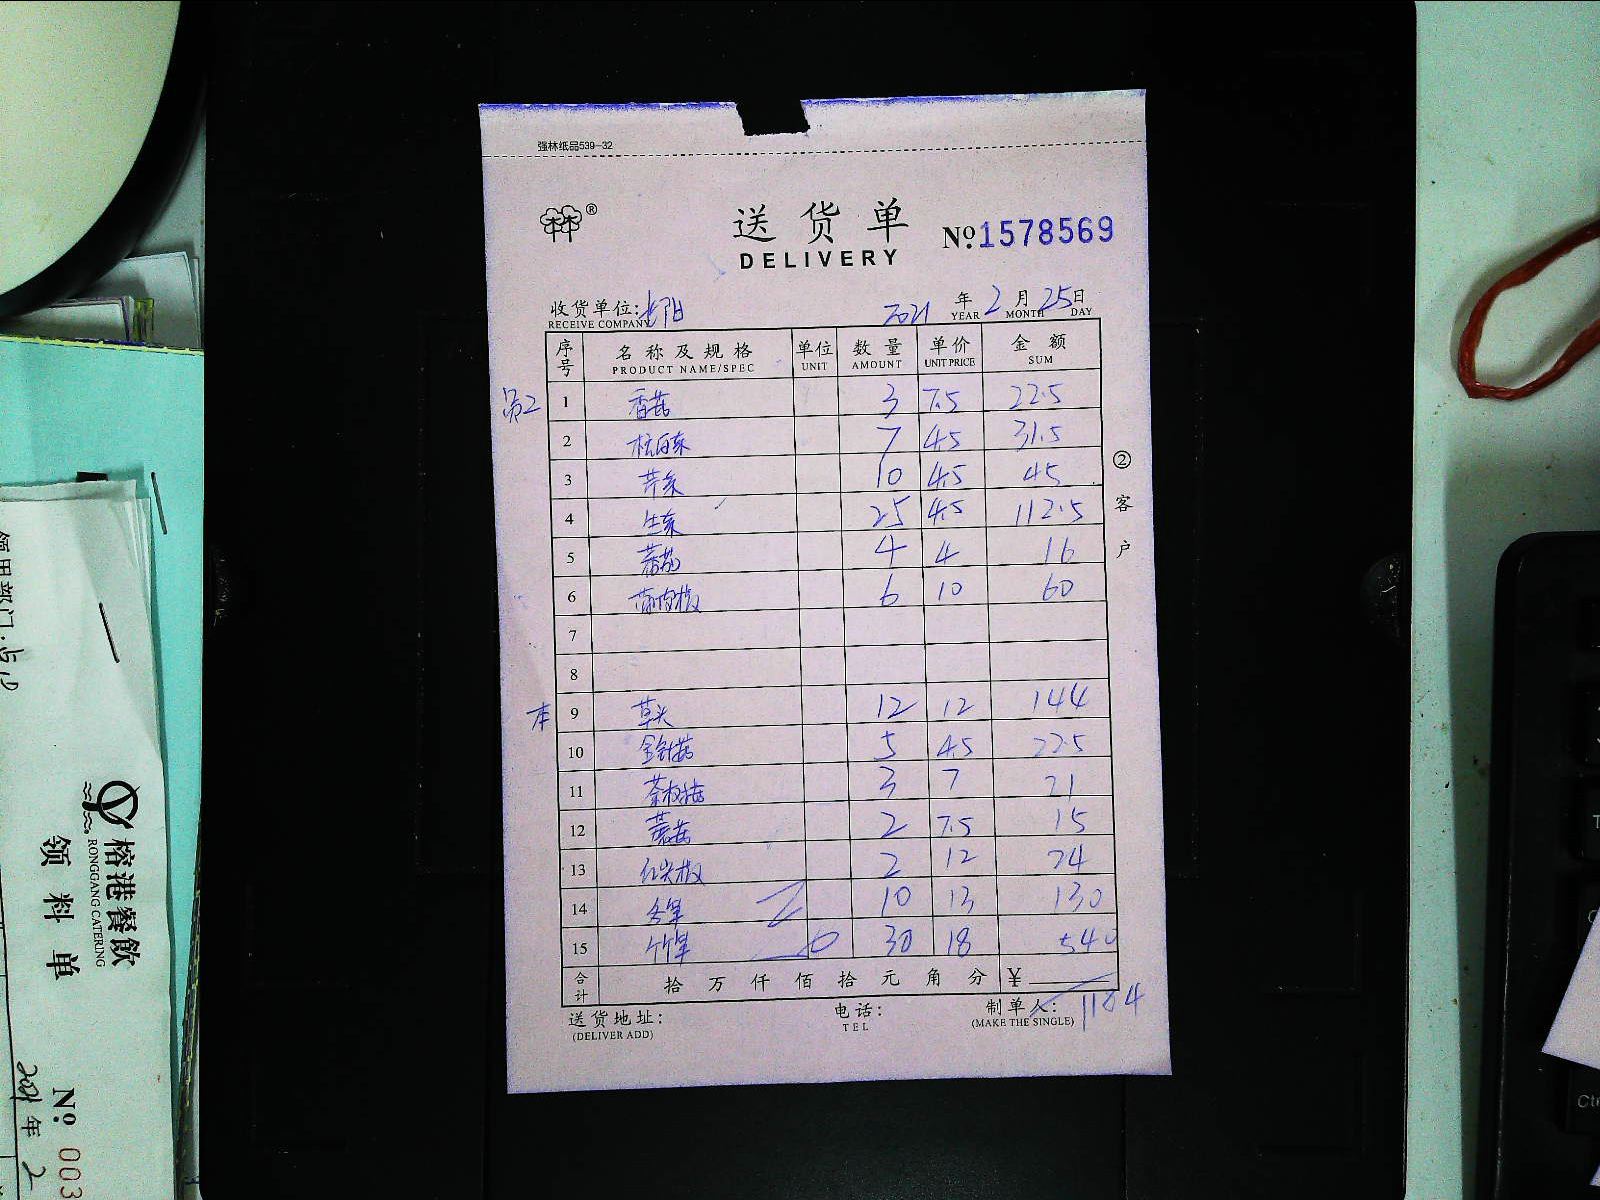 强林纸品539-32
林林®
送货单
DELIVERY
№1578569
收货单位:
RECEIVE COMPANY
2021 年 2 月 25 日
YEAR MONTH DAY
序号 名称及规格 单位 数量 单价 金额
PRODUCT NAME/SPEC UNIT AMOUNT UNIT PRICE SUM
员工 1 香菇 3 7.5 22.5
2 杭白菜 7 4.5 31.5
3 芹菜 10 4.5 45
4 生菜 25 4.5 112.5
5 蕃茄 4 4 16
6 6 10 60
7
8
本 9 草头 12 12 144
10 金针菇 5 4.5 22.5
11 茶树菇 3 7 21
12 蘑菇 2 7.5 15
13 红尖椒 2 12 24
14 冬笋 10 13 130
15 竹笋 30 18 540
合计 拾 万 仟 佰 拾 元 角 分 ¥
1184
送货地址: 电话: 制单人:
(DELIVER ADD) TEL (MAKE THE SINGLE)
②客户
领用部门:
榕港餐飲
RONGGANG CATERING
领料单
№ 003
2021 年 2